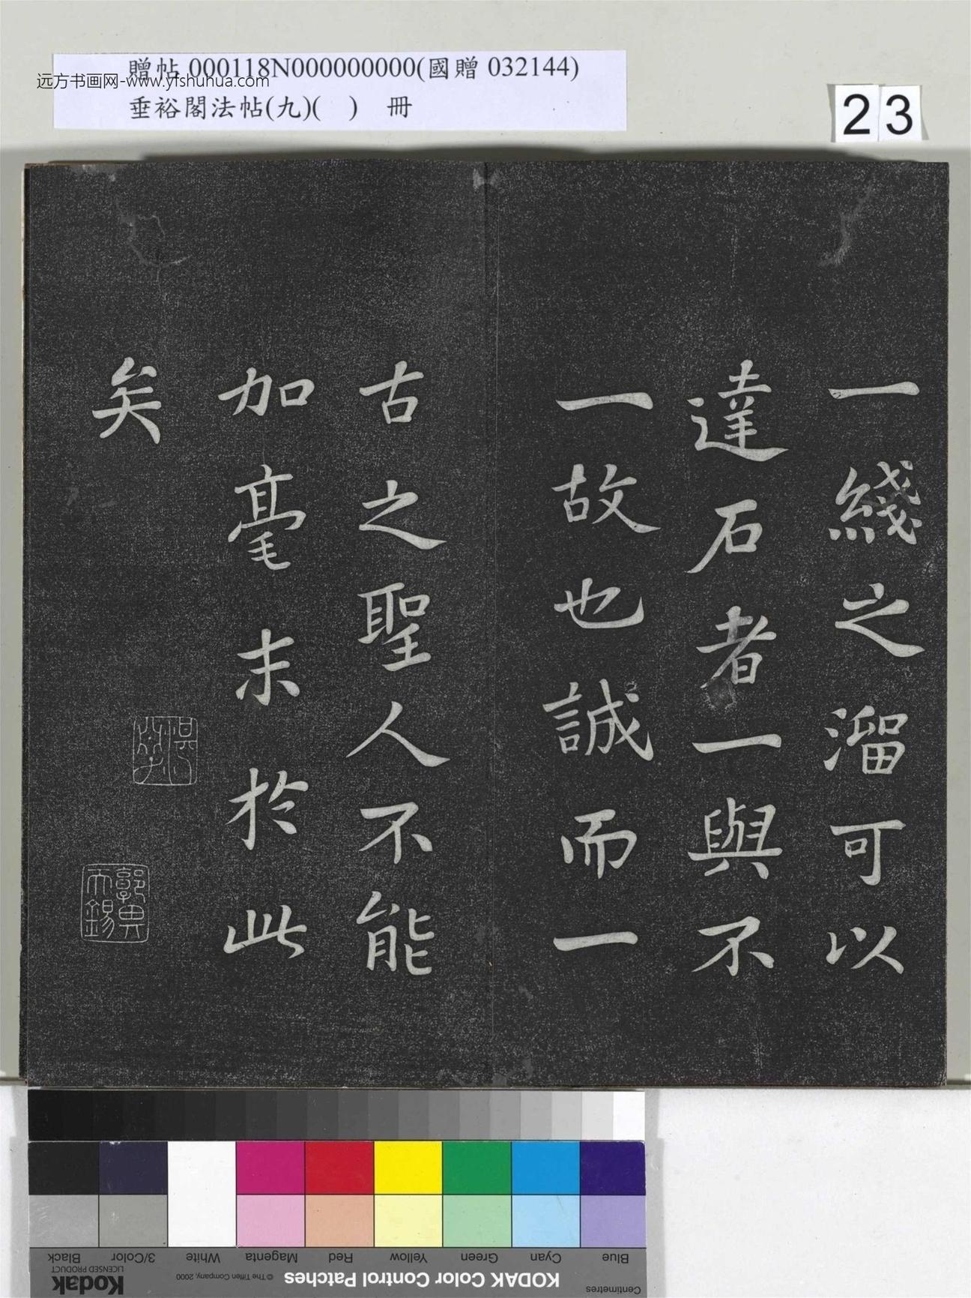 贈帖 000118N000000000(國贈 032144)
垂裕閣法帖(九)( ) 冊
远方书画网-www.yfshuhua.com
23
一綫之溜可以
達石者一與不
一故也誠而一
古之聖人不能
加毫末於此
矣
Black
3/Color
White
Magenta
Red
Yellow
Green
Cyan
Blue
Kodak
LICENSED PRODUCT
© The Tiffen Company, 2000
KODAK Color Control Patches
Centimetres